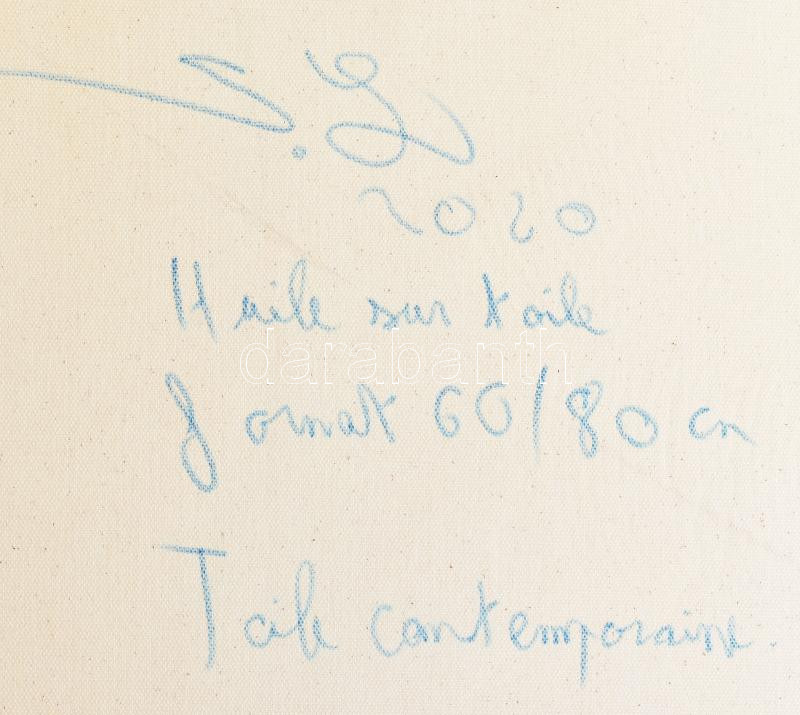 2020
Huile sur toile
darabanth
format 60/80 cm
Toile contemporaine.